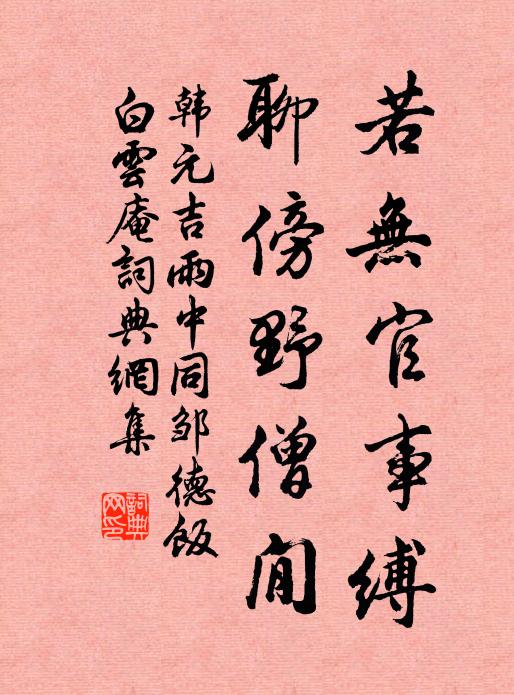 若無官事縛
聊傍野僧閒
韩元吉雨中同邹德飯
白雲庵詞典網集
詞典网印